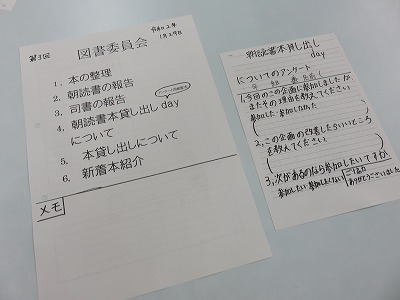 第3回
図書委員会
令和2年
1月29日
1. 本の整理
2. 朝読書の報告
3. 司書の報告
4. 朝読書本貸し出し day
について
5. 本貸し出しについて
6. 新着本紹介
メモ
朝読書本貸し出し
day
についてのアンケート
年 組 番 名前
1,今回のこの企画に参加しましたか
またその理由を教えてください
参加した・参加しなかった
2,この企画の改善したらいいところ
を教えてください
3,次があるのなら参加したいですか
参加したい・参加したくない
ご協力
ありがとうございました